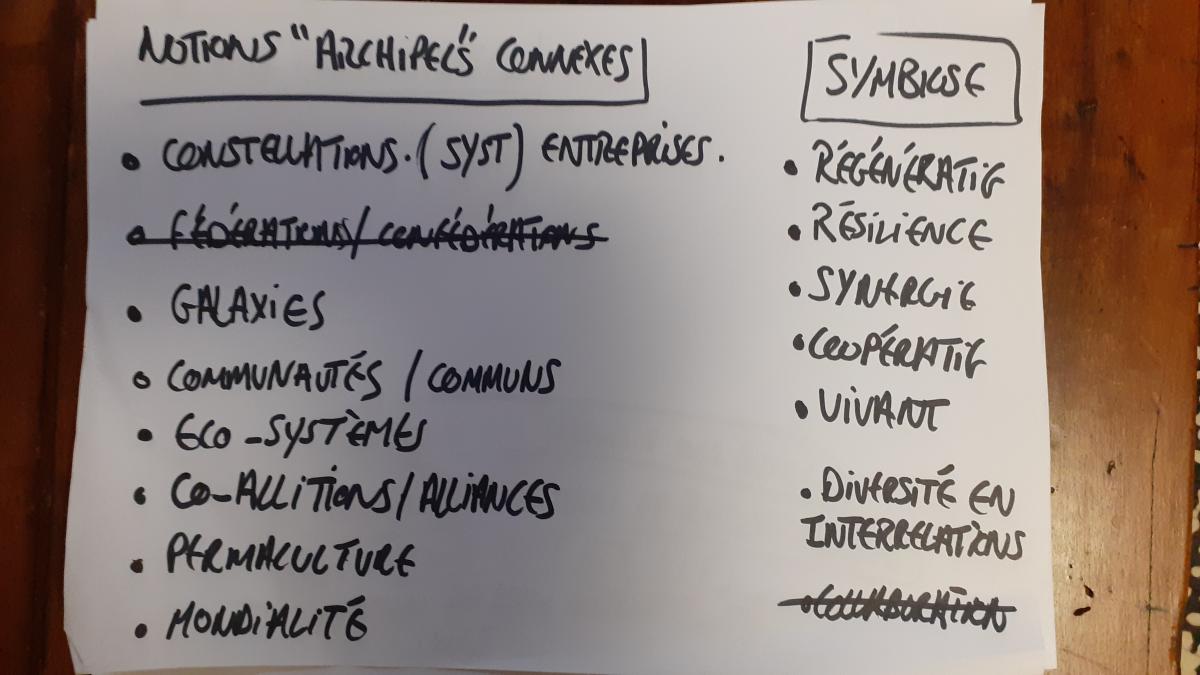 NOTIONS "ARCHIPELS" CONNEXES
• CONSTELLATIONS. (SYST) ENTREPRISES.
• FÉDÉRATIONS / CONFÉDÉRATIONS
• GALAXIES
• COMMUNAUTÉS / COMMUNS
• ECO-SYSTÈMES
• CO-ALLITIONS / ALLIANCES
• PERMACULTURE
• MONDIALITÉ
SYMBIOSE
• RÉGÉNÉRATIF
• RÉSILIENCE
• SYNERGIE
• COOPÉRATIF
• VIVANT
• DIVERSITÉ EN
INTERRELATIONS
• COLLABORATION